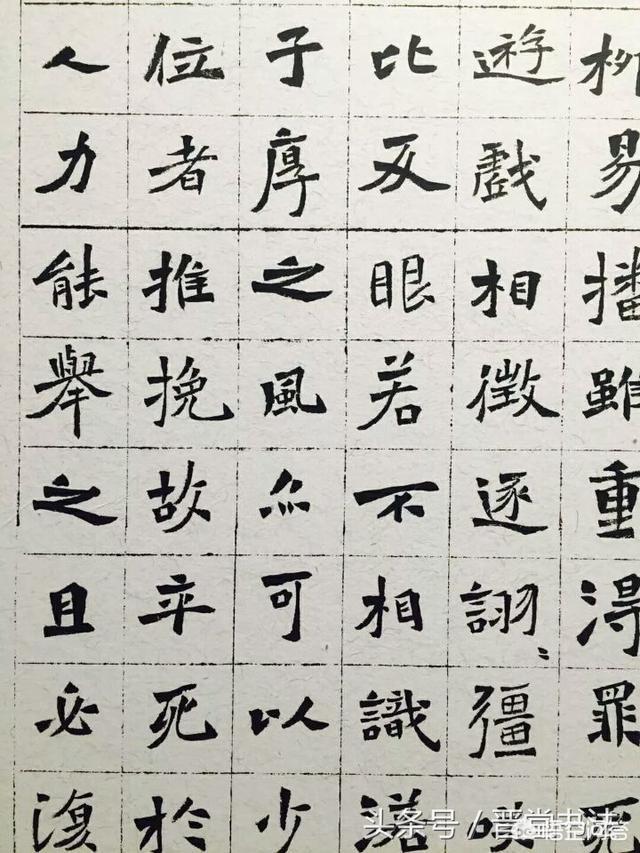 栁易播雖重淂罪死
遊戲相徵逐詡〻彊咲
比反眼若不相識落
子厚之風亦可以少
位者推挽故卒死於
人力能舉之且必復
头条号 / 书法